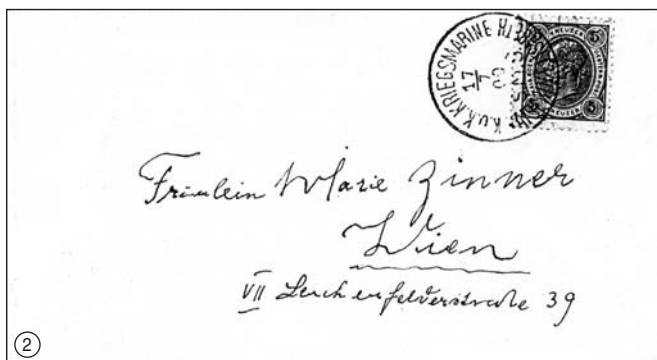 K.u.K. KRIEGSMARINE
17
7
KREUZER
5 5
5 5
KREUZER
Fräulein Marie Zinner
Wien
VII Lerchenfelderstraße 39
2